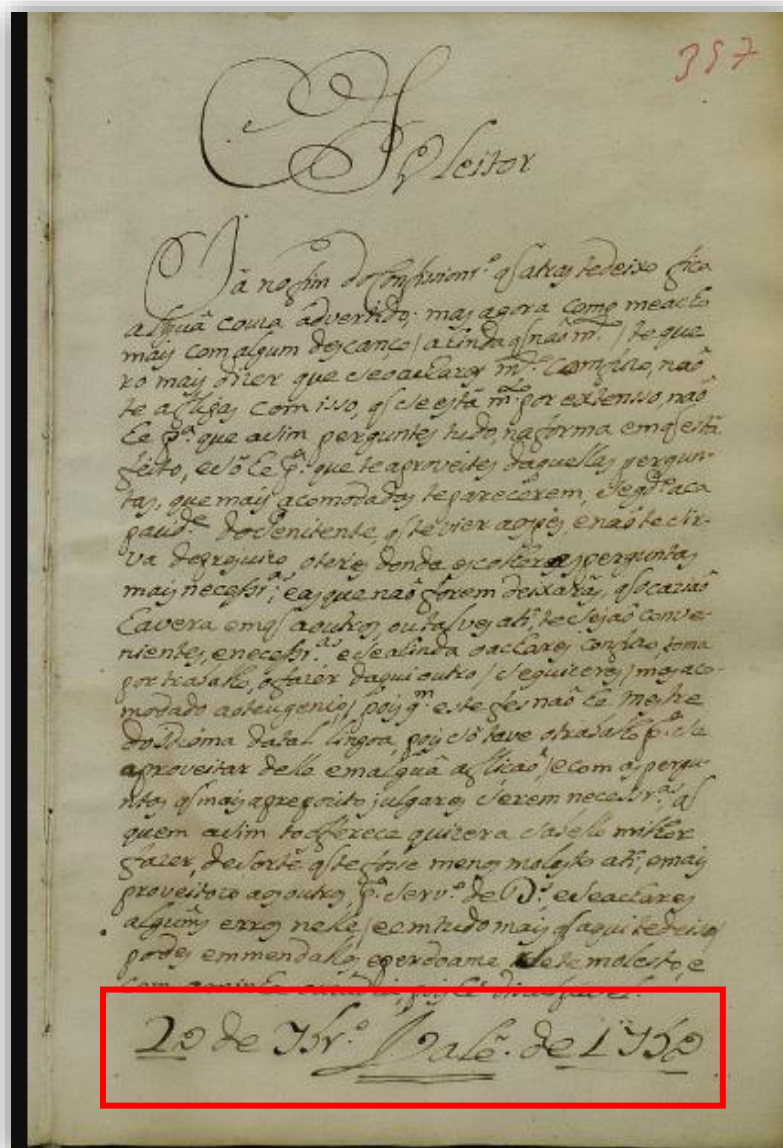 397
Ao leitor
Jâ no fim do Confissionr.º q̃ atras te deixo fica
algũa couza advertido; mas agora como me acho
mais com algum descanço / ainda q̃ não m.to / te que
ro mais dizer que se o achares m.to Comfuzo, não
te aflijas com isso, q̃ se està m.to por extensso, não
he p.ª que asim perguntes tudo, na forma em q̃ està
feito, e sò he p.ª que te aproveites daquellas pergun-
tas, que mais acomodadas te parecerem, segd.º a ca
pacid.e do Penitente, q̃ te vier aos pès, e não te sir-
va de prejuizo, o teres donde escolheres perguntas
mais necessr.as; e as que não forem deixarás, q̃ ocazião
haverà em q̃ a outros, ou talves a ti, te sejaõ conve-
nientes, e necessr.as e se ainda o achares confuzo, toma
por trabalho, o fazer daqui outro / se quizeres / mais aco-
modado ao teu genio / pois q.m este fes não hè Mestre
do Idioma da tal lingoa, pois sò teve o trabalho p.ª se
aproveitar delle em algũa aflicaõ / e com as pergu-
ntas q̃ mais a preposito julgares serem necessr.as, q̃
quem asim to offerece quizera sabello milhor
fazer, de sorte q̃ te fosse menos molesto a ti, e mais
proveitozo aos outros, p.ª serv.º de D.s e se achares
algũns erros nelle / e em tudo mais q̃ aqui te deixo /
podes emmendallos, e perdoame se te molesto, e
20 de 7br.º Vale. de 1750